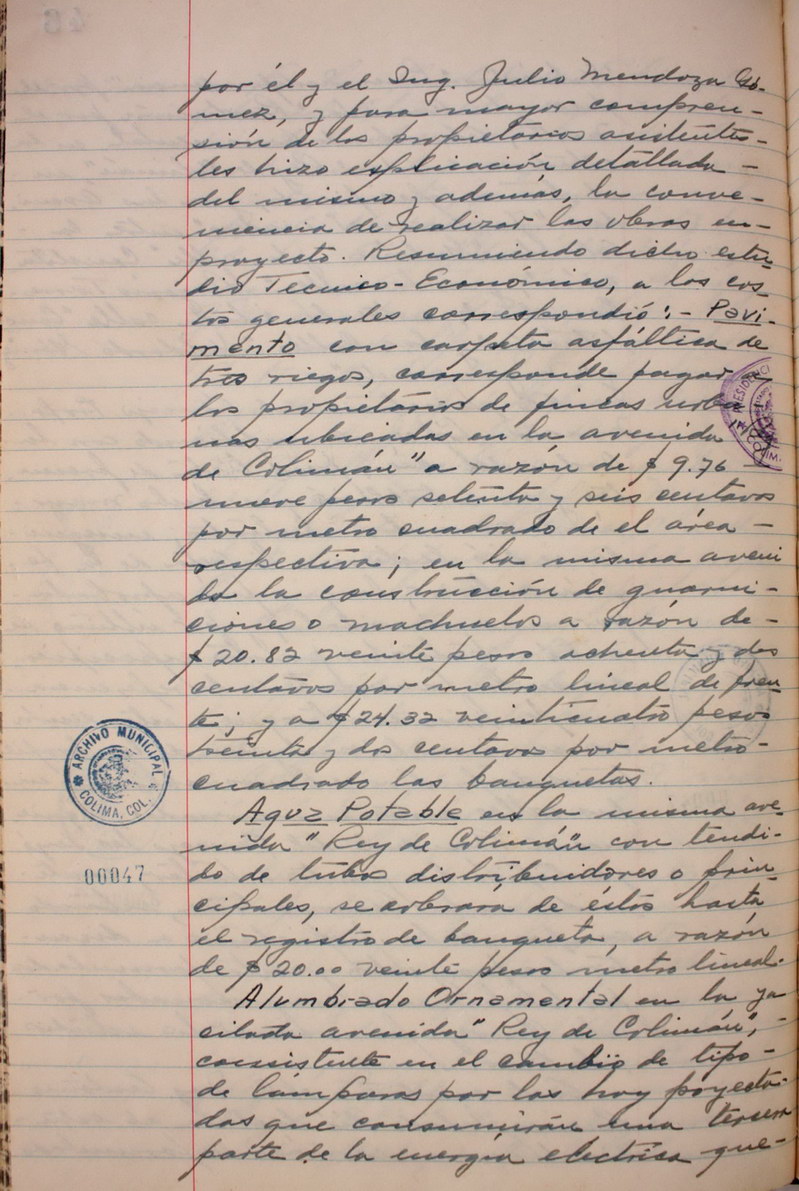 por él y el Ing. Julio Mendoza Gó-
mez, y para mayor compren-
sión de los propietarios asistentes-
les hizo explicación detallada-
del mismo y además, la conve-
niencia de realizar las obras en-
proyecto. Resumiendo dicho estu-
dio Tecnico-Económico, a los cos
tos generales correspondió:- Pavi-
mento con carpeta asfáltica de
tres riegos, corresponde pagar a
los propietarios de fincas urba
nas ubicadas en la avenida
de Colimán" a razón de $ 9.76
nueve pesos setenta y seis centavos
por metro cuadrado de el área-
respectiva; en la misma aveni
da la construcción de guarni-
ciones o machuelos a razón de-
$ 20.82 veinte pesos ochenta y dos
centavos por metro lineal de fren
te; y a $24.32 veinticuatro pesos
treinta y dos centavos por metro-
cuadrado las banquetas.
Agua Potable en la misma ave-
nida "Rey de Colimán" con tendi-
do de tubos distribuidores o prin-
cipales, se cobrará de éstos hasta
el registro de banqueta, a razón
de $ 20.00 veinte pesos metro lineal.
Alumbrado Ornamental en la ya
citada avenida "Rey de Colimán",-
consistente en el cambio de tipo-
de lámparas por las hoy poyecta-
das que consumirán una tercera
parte de la energía electrica que-
ARCHIVO MUNICIPAL
COLIMA, COL.
00047